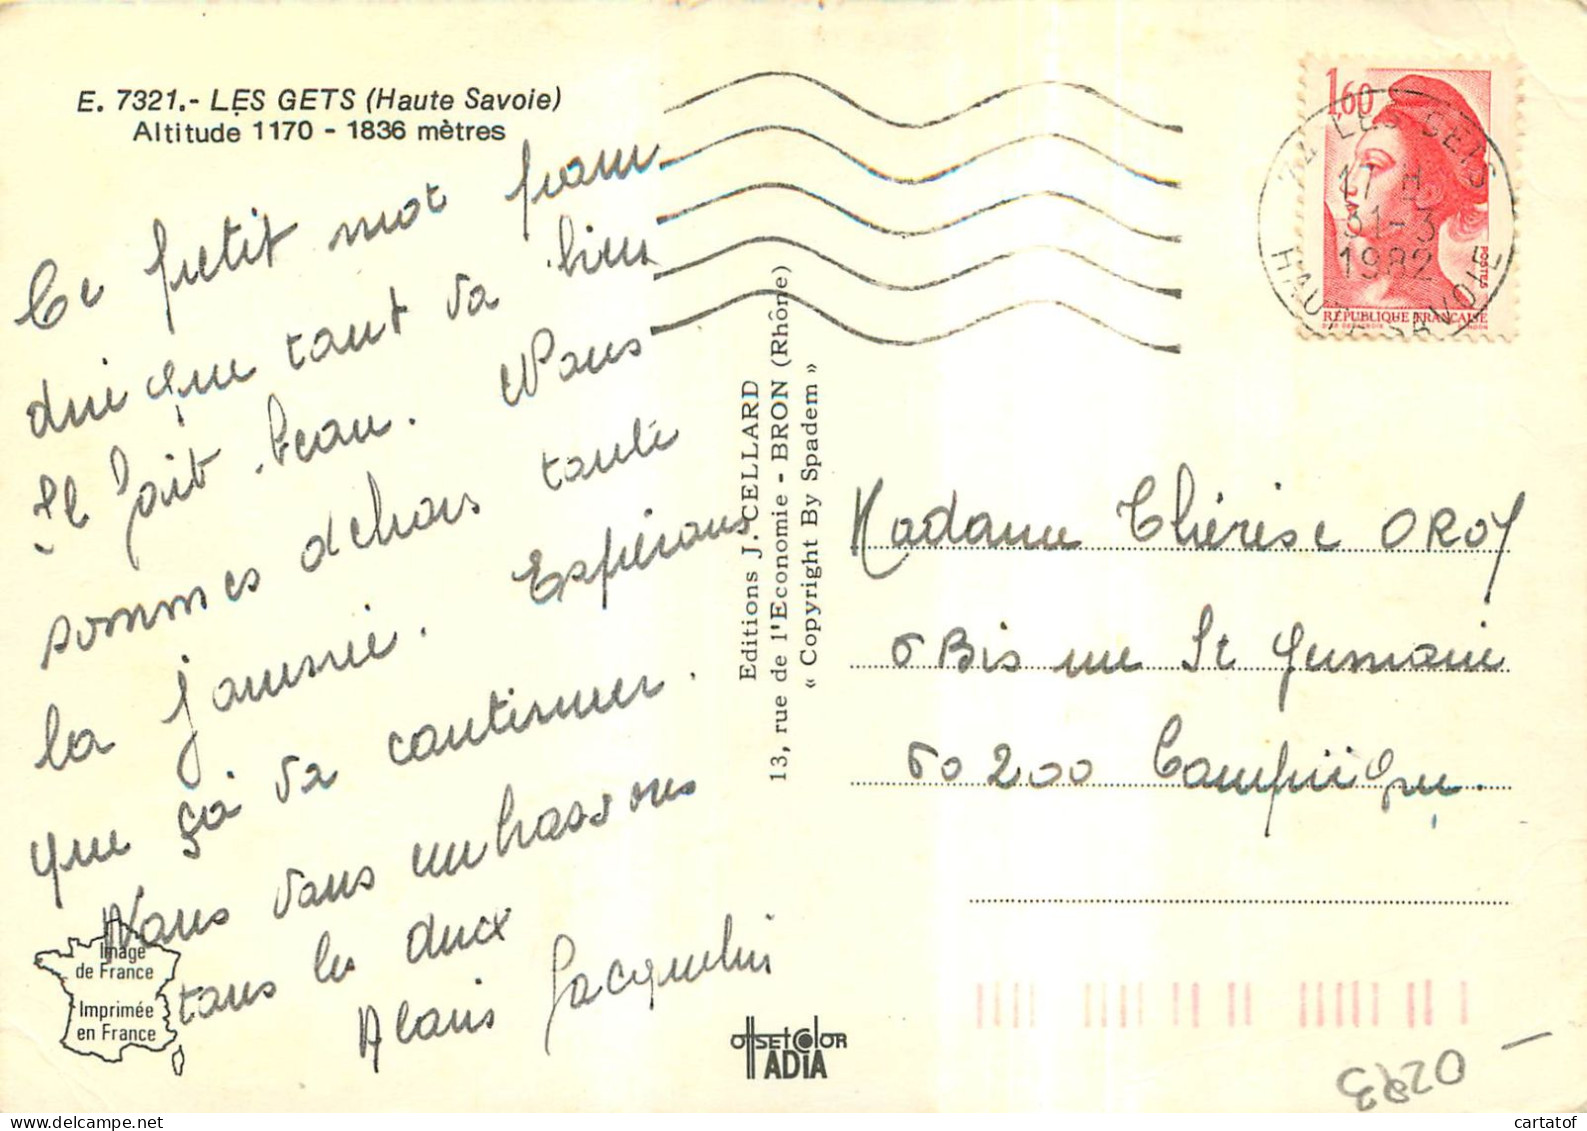 E. 7321.- LES GETS (Haute Savoie)
Altitude 1170 - 1836 mètres
Ce petit mot pour
dire que tout va bien
Il fait beau. Nous
sommes dehors toute
la journée. Espérons
que ça va continuer.
Nous vous embrassons
tous les deux
Alain Jacqueline
Image
de France
Imprimée
en France
Editions J. CELLARD
13, rue de l'Economie - BRON (Rhône)
« Copyright By Spadem »
OFFSET COLOR
ADIA
1,60
POSTES
RÉPUBLIQUE FRANÇAISE
74 LES GETS
17 H
31-3
1982
HAUTE SAVOIE
Madame Thérèse OROY
6 Bis rue St Germain
60200 Compiègne.
0293
cartatof